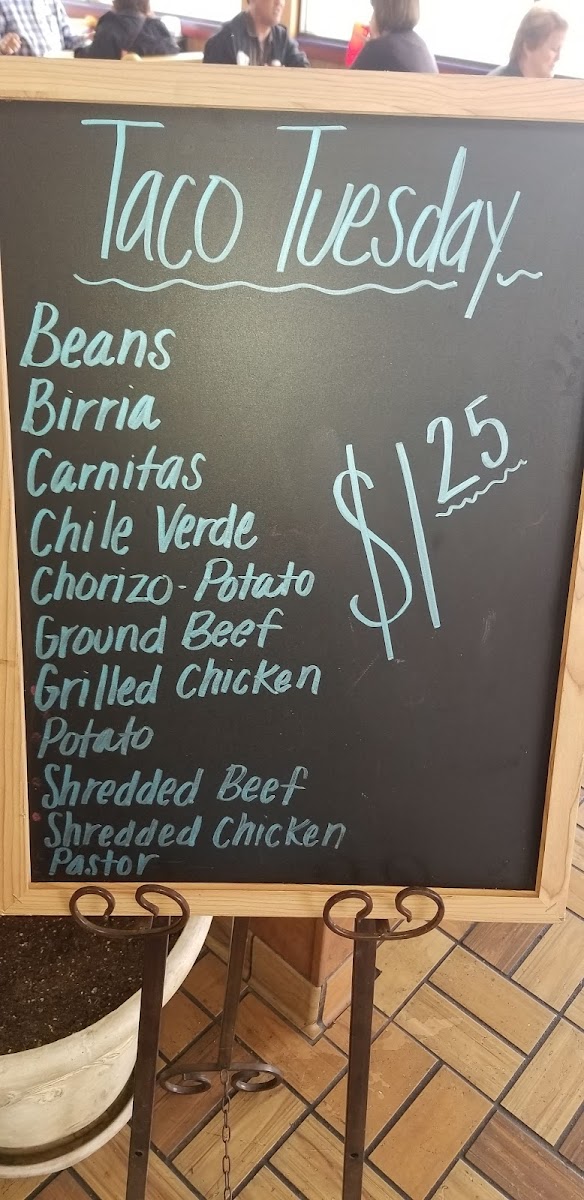 Taco Tuesday
Beans
Birria
Carnitas
Chile Verde
Chorizo-Potato
Ground Beef
Grilled Chicken
Potato
Shredded Beef
Shredded Chicken
Pastor
$1 25